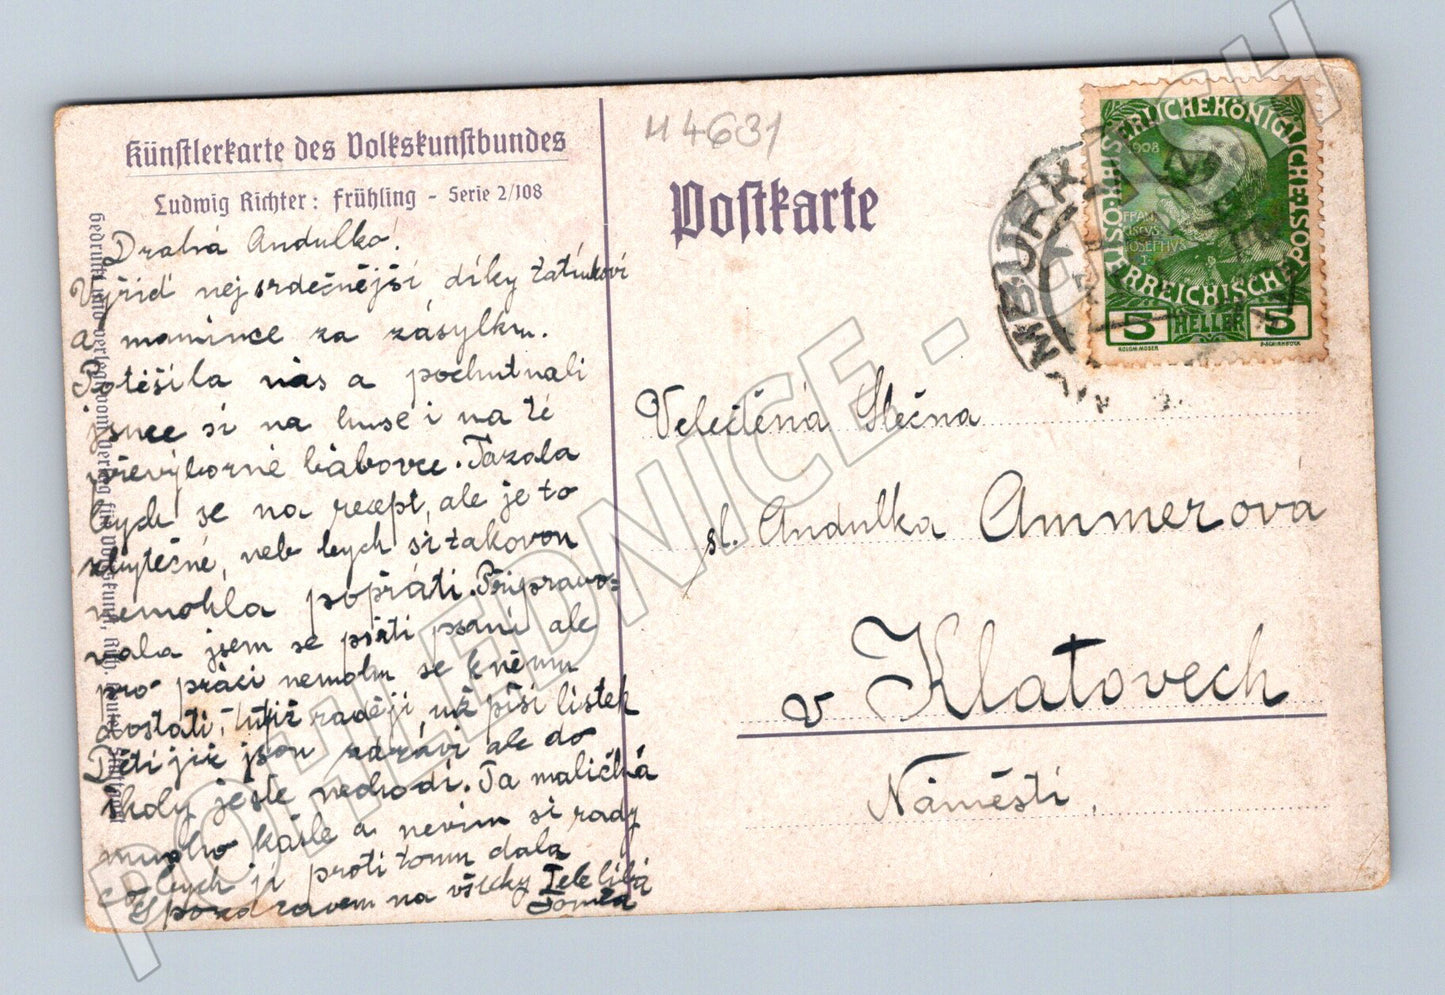 Künstlerkarte des Volkskunstbundes
Ludwig Richter: Frühling - Serie 2/108
Drahá Andulko!
Vyřiď nejsrdečnější díky tatínkovi
a mamince za zásylku.
Potěšila nás a pochutnali
jsme si na huse i na té
převýborné bábovce. Tázala
bych se na recept, ale je to
zbytečné, neb bych si takovou
nemohla popřáti. Připravo=
vala jsem se psáti psaní ale
pro práci nemohu se k němu
dostati, tutiž raději, už píši lístek
Děti již jsou zdrávi ale do
školy ješte nechodí. Ta maličká
mnoho kašle a nevím si rady
co bych jí proti tomu dala
Pozdravem na všecky Tebe líbá
44631
Postkarte
KAISERLICHE KÖNIGLICHE
ÖSTERREICHISCHE POST
1908
FRANCISCUS JOSEPHUS I
5 HELLER 5
KOLOM. MOSER
F. SCHIRNBÖCK
NIMBURK
Velectěná Slečna
sl. Andulka Ammerova
v Klatovech
Náměstí,
POHLEDNICE - ESH